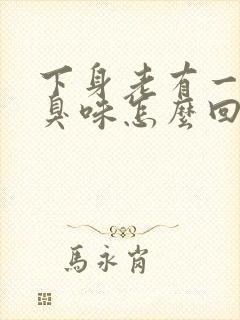 下身老有一
臭味怎麼回
馬永肖